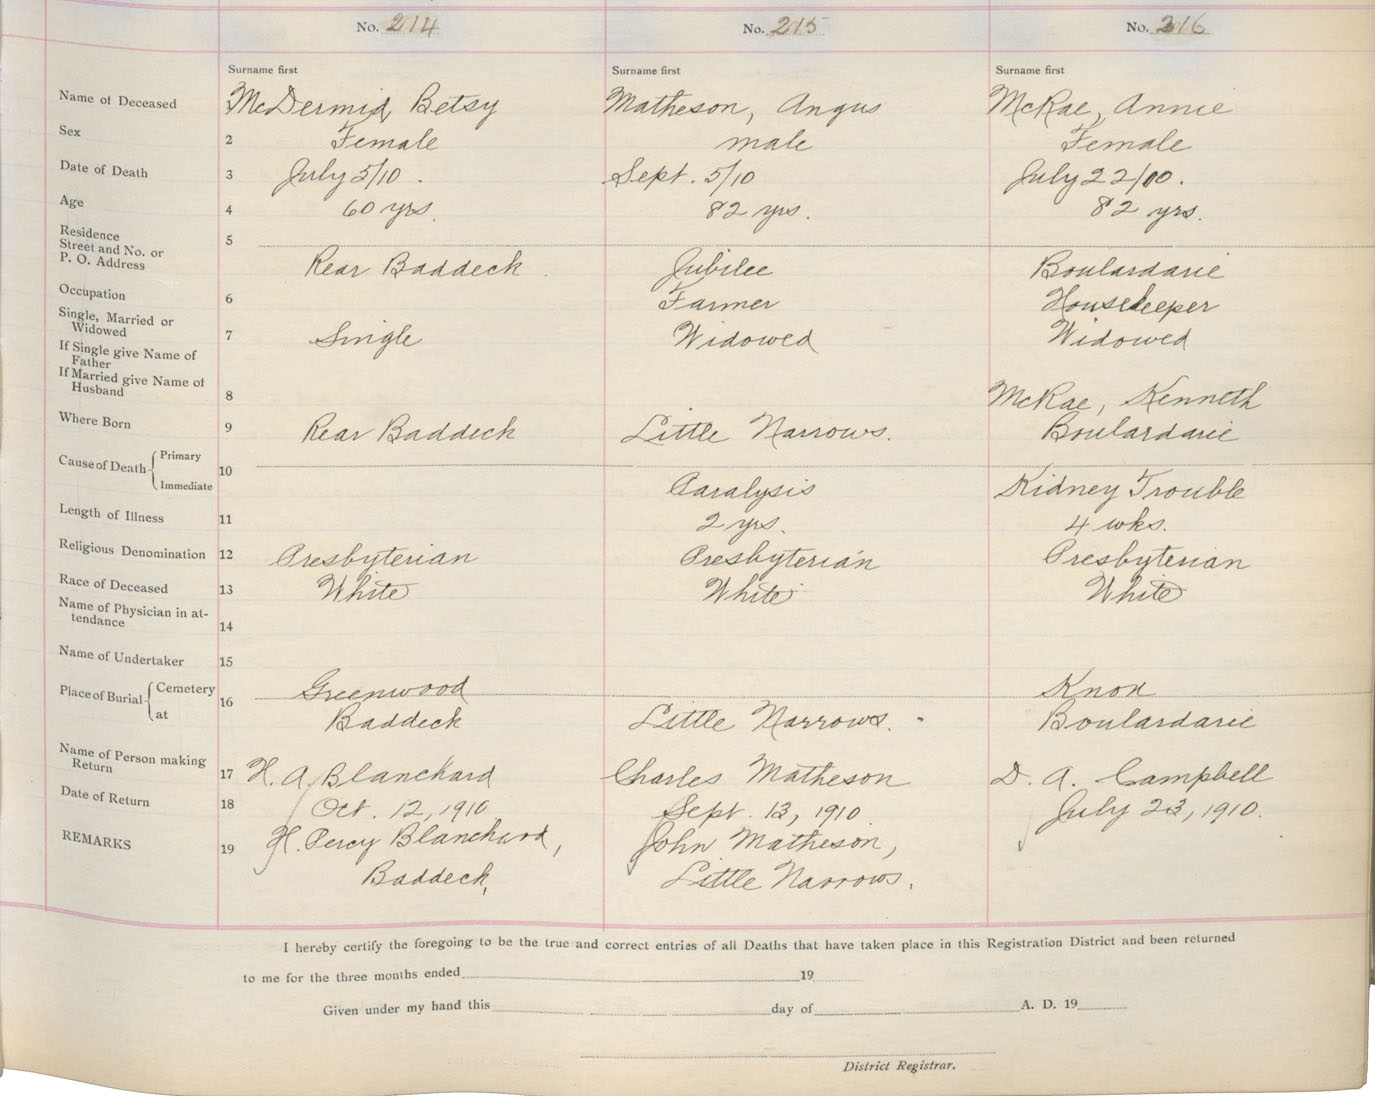 No. 214 No. 215 No. 216
Surname first Surname first Surname first
Name of Deceased McDermid, Betsy Matheson, Angus McRae, Annie
Sex 2 Female male Female
Date of Death 3 July 5/10. Sept. 5/10 July 22/10.
Age 4 60 yrs. 82 yrs. 82 yrs.
Residence
Street and No. or 5
P. O. Address Rear Baddeck. Jubilee Boulardarie
Occupation 6 Farmer Housekeeper
Single, Married or
Widowed 7 Single Widowed Widowed
If Single give Name of
Father
If Married give Name of
Husband 8 McRae, Kenneth
Where Born 9 Rear Baddeck Little Narrows. Boulardarie
Cause of Death Primary 10
Immediate Paralysis Kidney Trouble
Length of Illness 11 2 yrs. 4 wks.
Religious Denomination 12 Presbyterian Presbyterian Presbyterian
Race of Deceased 13 White White White
Name of Physician in at-
tendance 14
Name of Undertaker 15
Place of Burial Cemetery 16 Greenwood Knox
at Baddeck Little Narrows. Boulardarie
Name of Person making
Return 17 H. A. Blanchard Charles Matheson D. A. Campbell
Date of Return 18 Oct. 12, 1910 Sept. 13, 1910 July 23, 1910.
REMARKS 19 H. Percy Blanchard, John Matheson,
Baddeck, Little Narrows.
I hereby certify the foregoing to be the true and correct entries of all Deaths that have taken place in this Registration District and been returned
to me for the three months ended 19
Given under my hand this day of A. D. 19
District Registrar.